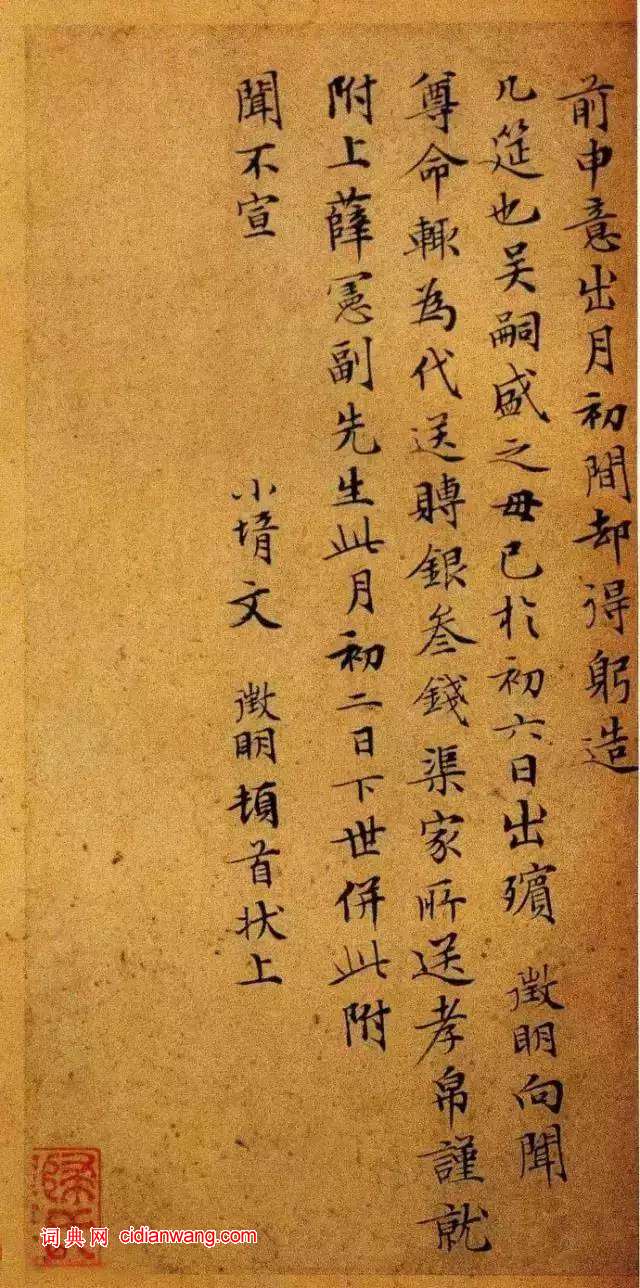 前申意出月初間却得躬造
几筵也吴嗣盛之毋已於初六日出殯 徵明向聞
尊命輙為代送賻銀叁錢渠家所送孝帛謹就
附上薛憲副先生此月初二日下世併此附
聞不宣
小壻文 徵明頓首狀上
词典网 cidianwang.com